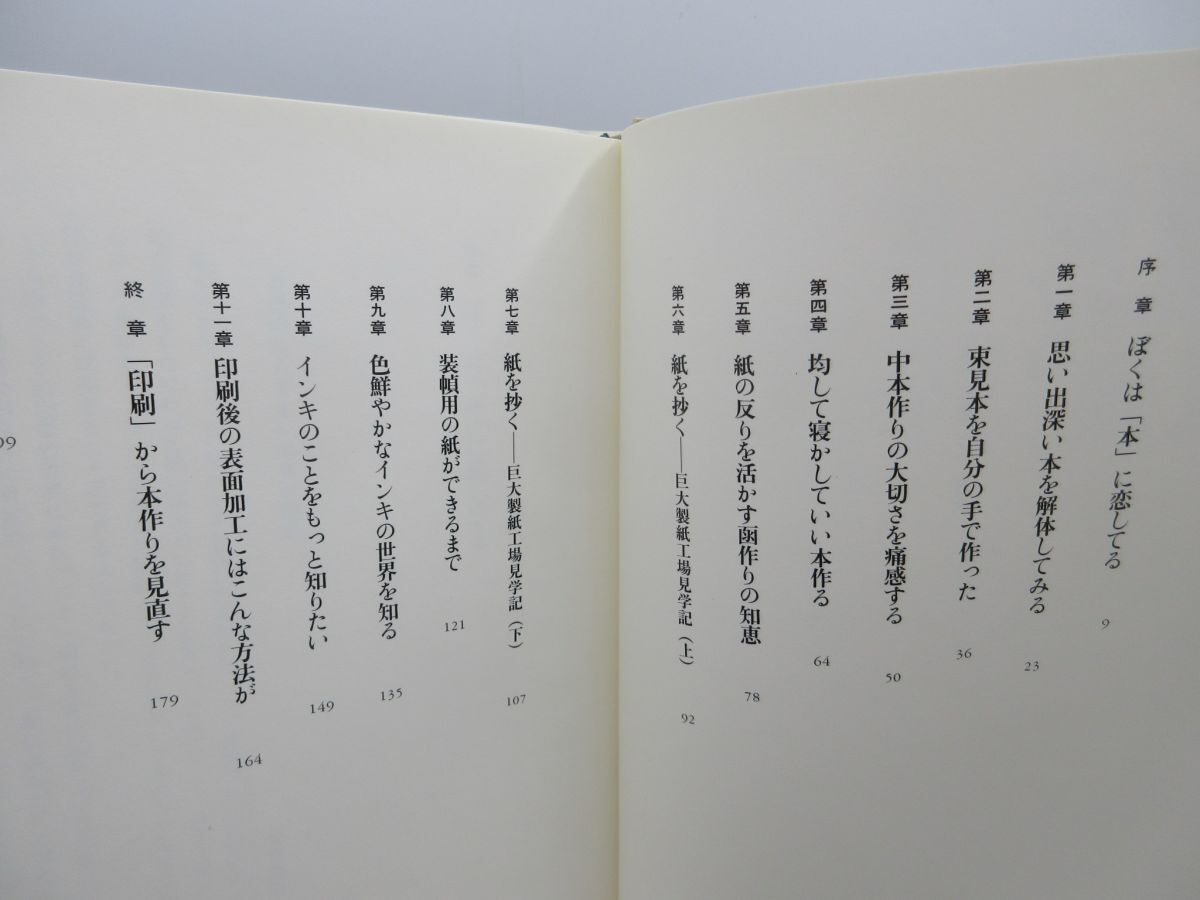 序章 ぼくは「本」に恋してる 9
第一章 思い出深い本を解体してみる 23
第二章 束見本を自分の手で作った 36
第三章 中本作りの大切さを痛感する 50
第四章 均して寝かしていい本作る 64
第五章 紙の反りを活かす函作りの知恵 78
第六章 紙を抄く——巨大製紙工場見学記(上) 92
第七章 紙を抄く——巨大製紙工場見学記(下) 107
第八章 装幀用の紙ができるまで 121
第九章 色鮮やかなインキの世界を知る 135
第十章 インキのことをもっと知りたい 149
第十一章 印刷後の表面加工にはこんな方法が 164
終章 「印刷」から本作りを見直す 179